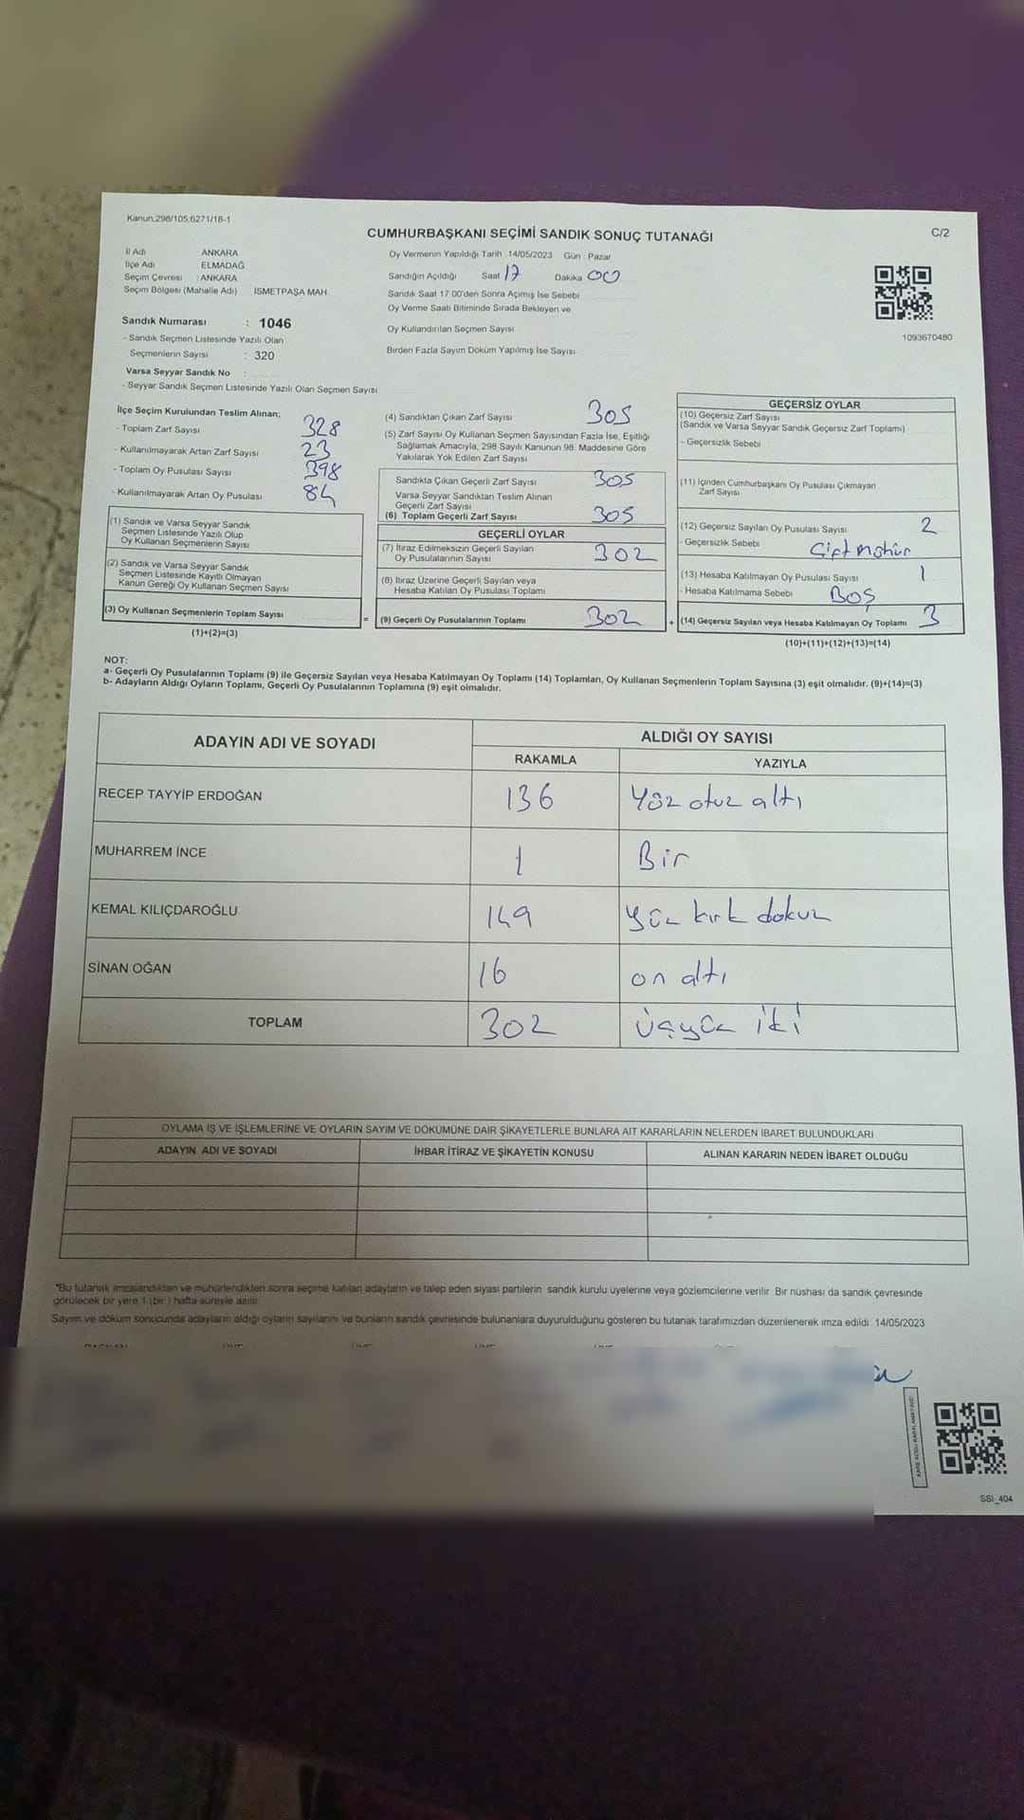 Kanun.298/105,6271/18-1
CUMHURBAŞKANI SEÇİMİ SANDIK SONUÇ TUTANAĞI
C/2
İl Adı ANKARA
İlçe Adı ELMADAĞ
Seçim Çevresi : ANKARA
Seçim Bölgesi (Mahalle Adı) İSMETPAŞA MAH.
Sandık Numarası : 1046
- Sandık Seçmen Listesinde Yazılı Olan
Seçmenlerin Sayısı : 320
Varsa Seyyar Sandık No
- Seyyar Sandık Seçmen Listesinde Yazılı Olan Seçmen Sayısı
Oy Vermenin Yapıldığı Tarih : 14/05/2023 Gün : Pazar
Sandığın Açıldığı Saat 17 Dakika 00
Sandık Saat 17:00'den Sonra Açımış İse Sebebi
Oy Verme Saati Bitiminde Sırada Bekleyen ve
Oy Kullandırılan Seçmen Sayısı
Birden Fazla Sayım Döküm Yapılmış İse Sayısı
1093670480
İlçe Seçim Kurulundan Teslim Alınan;
- Toplam Zarf Sayısı 328
- Kullanılmayarak Artan Zarf Sayısı 23
- Toplam Oy Pusulası Sayısı 398
- Kullanılmayarak Artan Oy Pusulası 84
(1) Sandık ve Varsa Seyyar Sandık
Seçmen Listesinde Yazılı Olup
Oy Kullanan Seçmenlerin Sayısı
(2) Sandık ve Varsa Seyyar Sandık
Seçmen Listesinde Kayıtlı Olmayan
Kanun Gereği Oy Kullanan Seçmen Sayısı
(3) Oy Kullanan Seçmenlerin Toplam Sayısı
(1)+(2)=(3)
=
(4) Sandıktan Çıkan Zarf Sayısı 305
(5) Zarf Sayısı Oy Kullanan Seçmen Sayısından Fazla İse, Eşitliği
Sağlamak Amacıyla, 298 Sayılı Kanunun 98. Maddesine Göre
Yakılarak Yok Edilen Zarf Sayısı
Sandıkta Çıkan Geçerli Zarf Sayısı 305
Varsa Seyyar Sandıktan Teslim Alınan
Geçerli Zarf Sayısı
(6) Toplam Geçerli Zarf Sayısı 305
GEÇERLİ OYLAR
(7) İtiraz Edilmeksizin Geçerli Sayılan
Oy Pusulalarının Sayısı 302
(8) İtiraz Üzerine Geçerli Sayılan veya
Hesaba Katılan Oy Pusulası Toplamı
(9) Geçerli Oy Pusulalarının Toplamı 302
+
GEÇERSİZ OYLAR
(10) Geçersiz Zarf Sayısı
(Sandık ve Varsa Seyyar Sandık Geçersiz Zarf Toplamı)
- Geçersizlik Sebebi
(11) İçinden Cumhurbaşkanı Oy Pusulası Çıkmayan
Zarf Sayısı
(12) Geçersiz Sayılan Oy Pusulası Sayısı 2
- Geçersizlik Sebebi Çift mühür
(13) Hesaba Katılmayan Oy Pusulası Sayısı 1
- Hesaba Katılmama Sebebi BOŞ
(14) Geçersiz Sayılan veya Hesaba Katılmayan Oy Toplamı 3
(10)+(11)+(12)+(13)=(14)
NOT:
a- Geçerli Oy Pusulalarının Toplamı (9) ile Geçersiz Sayılan veya Hesaba Katılmayan Oy Toplamı (14) Toplamları, Oy Kullanan Seçmenlerin Toplam Sayısına (3) eşit olmalıdır. (9)+(14)=(3)
b- Adayların Aldığı Oyların Toplamı, Geçerli Oy Pusulalarının Toplamına (9) eşit olmalıdır.
ADAYIN ADI VE SOYADI ALDIĞI OY SAYISI
RAKAMLA YAZIYLA
RECEP TAYYİP ERDOĞAN 136 Yüz otuz altı
MUHARREM İNCE 1 Bir
KEMAL KILIÇDAROĞLU 149 yüz kırk dokuz
SİNAN OĞAN 16 on altı
TOPLAM 302 üçyüz iki
OYLAMA İŞ VE İŞLEMLERİNE VE OYLARIN SAYIM VE DÖKÜMÜNE DAİR ŞİKAYETLERLE BUNLARA AİT KARARLARIN NELERDEN İBARET BULUNDUKLARI
ADAYIN ADI VE SOYADI İHBAR İTİRAZ VE ŞİKAYETİN KONUSU ALINAN KARARIN NEDEN İBARET OLDUĞU
*Bu tutanak imzalandıktan ve mühürlendikten sonra seçime katılan adayların ve talep eden siyasi partilerin sandık kurulu üyelerine veya gözlemcilerine verilir. Bir nüshası da sandık çevresinde
görülecek bir yere 1 (bir) hafta süreyle asılır.
Sayım ve döküm sonucunda adayların aldığı oyların sayılarını ve bunların sandık çevresinde bulunanlara duyurulduğunu gösteren bu tutanak tarafımızdan düzenlenerek imza edildi. 14/05/2023
SSI_404